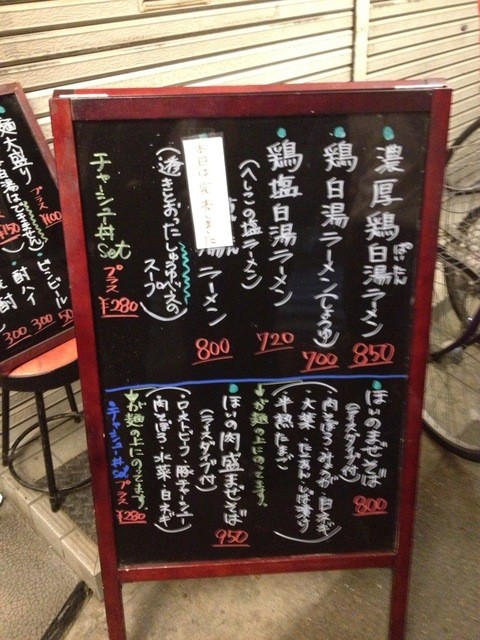 濃厚鶏白湯ラーメン
850
鶏白湯ラーメン(しょうゆ)
700
鶏塩白湯ラーメン
(へしこの塩ラーメン)
720
本日は完売しました
ラーメン
800
(透きとおったしょうゆベースの
スープ)
チャーシュー丼set
プラス
¥280
ほいのまぜそば
(ライスダイブ付)
800
肉そぼろ・みつば・白ネギ
大葉・
半熟たまご
が麺の上にのってます。
ほいの肉盛まぜそば
(ライスダイブ付)
950
ローストビーフ・豚チャーシュー
肉そぼろ・水菜・白ネギ
が麺の上にのってます。
チャーシュー丼set
プラス
¥280
麺大盛り
プラス
¥100
白湯はできません
¥150
ビンビール
50
酎ハイ
300
300